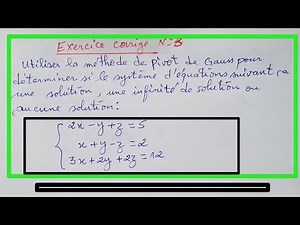 Exercice corrigé N=3
Utiliser la méthode de pivot de Gauss pour
déterminer si le système d'équations suivant a
une solution, une infinité de solution ou
aucune solution:
2x-y+z=5
x+y-z=2
3x+2y+2z=12